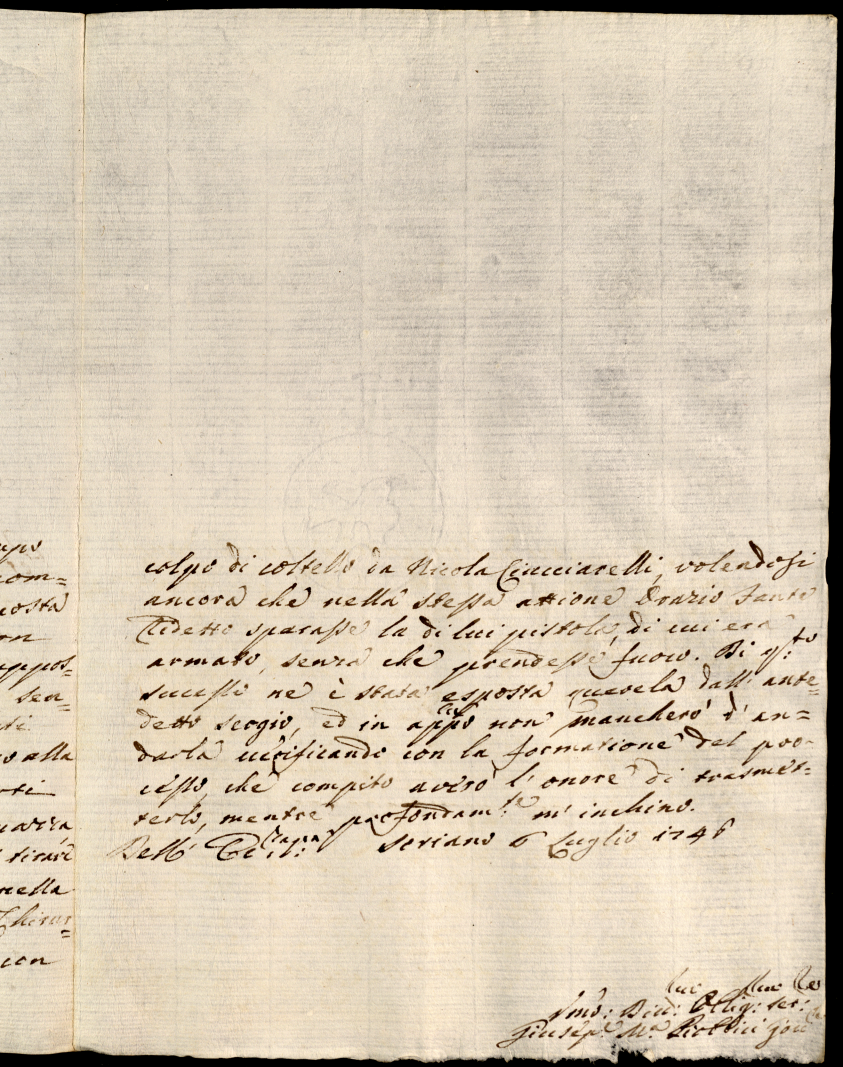 colpo di coltello da Nicola Ciucciarelli, volendosi
ancora che nella stessa attione Orazio Fante
sparasse la di lui pistola, di cui era
armato, senza che prendesse fuoco. Di q.to
successo ne è stata esposta querela dall' ante=
detto Scogio, ed in app.o non mancherò d' an=
darla verificando con la formatione del pro-
cesso, che compito averò l' onore di trasmet-
terlo, mentre profondam.te m' inchino.
Dell' Soriano 6 Luglio 1746
Umo: Div: Obblig: ser:
Giusep.e M.a
com=
costa
sen=
alla
nella
con